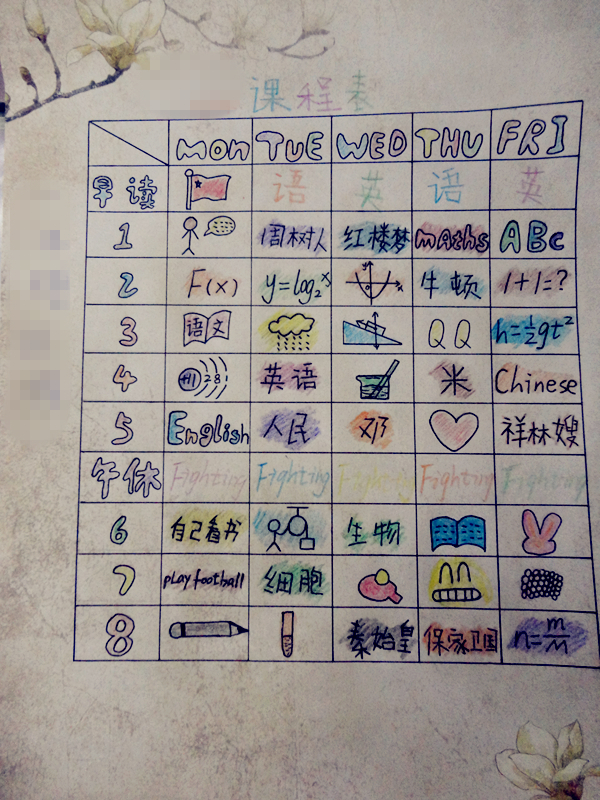 课程表
MON TUE WED THU FRI
早读 语 英 语 英
1 周树人 红楼梦 maths ABC
2 F(x) y=log₂ˣ 牛顿 1+1=?
3 语文 QQ h=½gt²
4 +11 2 8 1 英语 米 Chinese
5 English 人民 邓 祥林嫂
午休 Fighting Fighting Fighting Fighting Fighting
6 自己看书 生物
7 play football 细胞
8 秦始皇 保家卫国 n=m/M